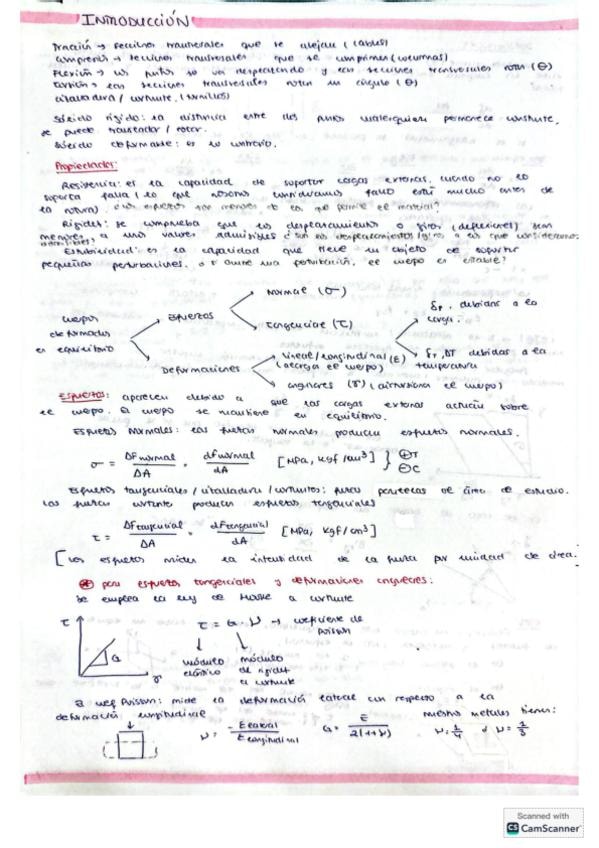 INTRODUCCIÓN
Tracción → secciones transversales que se alejan (cables)
Compresión → secciones transversales que se comprimen (columnas)
Flexión → los puntos se van desplazando y las secciones transversales rotan (θ)
Torsión → las secciones transversales rotan un ángulo (θ)
Cizalladura / cortante. (tornillos)
Sólido rígido: la distancia entre dos puntos cualesquiera permanece constante,
se puede trasladar / rotar.
Sólido deformable: es lo contrario.
Propiedades:
Resistencia: es la capacidad de soportar cargas externas, cuando no lo
soporta falla (lo que nosotros consideramos fallo está mucho antes de
la rotura). ¿Los esfuerzos son menores de los que permite el material?
Rigidez: se comprueba que los desplazamientos o giros (deflexiones) sean
menores a unos valores admisibles ¿son los desplazamientos/giros a los que consideramos
admisibles?
Estabilidad: es la capacidad que tiene un objeto de soportar
pequeñas perturbaciones. ante una perturbación, el cuerpo es estable?
Cuerpos
deformados
en equilibrio
Esfuerzos
Normal (σ)
Tangencial (τ)
Deformaciones
Lineal/longitudinal (E)
(alarga el cuerpo)
angulares (γ) (distorsiona el cuerpo)
δF, debidas a la
carga.
δT, ΔT debidas a la
temperatura
Esfuerzos: aparecen debido a que las cargas externas actúan sobre
el cuerpo. El cuerpo se mantiene en equilibrio.
Esfuerzos Normales: las fuerzas normales producen esfuerzos normales.
σ = ΔFnormal / ΔA = dFnormal / dA [MPa, kgf/cm³] } ⊕T ⊖C
Esfuerzos tangenciales / cizalladura / cortantes: fuerzas paralelas al área de estudio.
Las fuerzas cortante producen esfuerzos tangenciales
τ = ΔFtangencial / ΔA = dFtangencial / dA [MPa, kgf/cm³]
[Los esfuerzos miden la intensidad de la fuerza por unidad de área.
⊛ para esfuerzos tangenciales y deformaciones angulares:
Se emplea la ley de Hooke a cortante
τ
G
γ
τ = G · ν → coeficiente de
Poisson
módulo
elástico
módulo
de rigidez
a cortante
coef Poisson: mide la deformación lateral con respecto a la
deformación longitudinal
ν = - Elateral / Elongitudinal
G = E / 2(1+ν)
metales tienen:
ν = 1/4 ó ν = 1/3
Scanned with
CS CamScanner